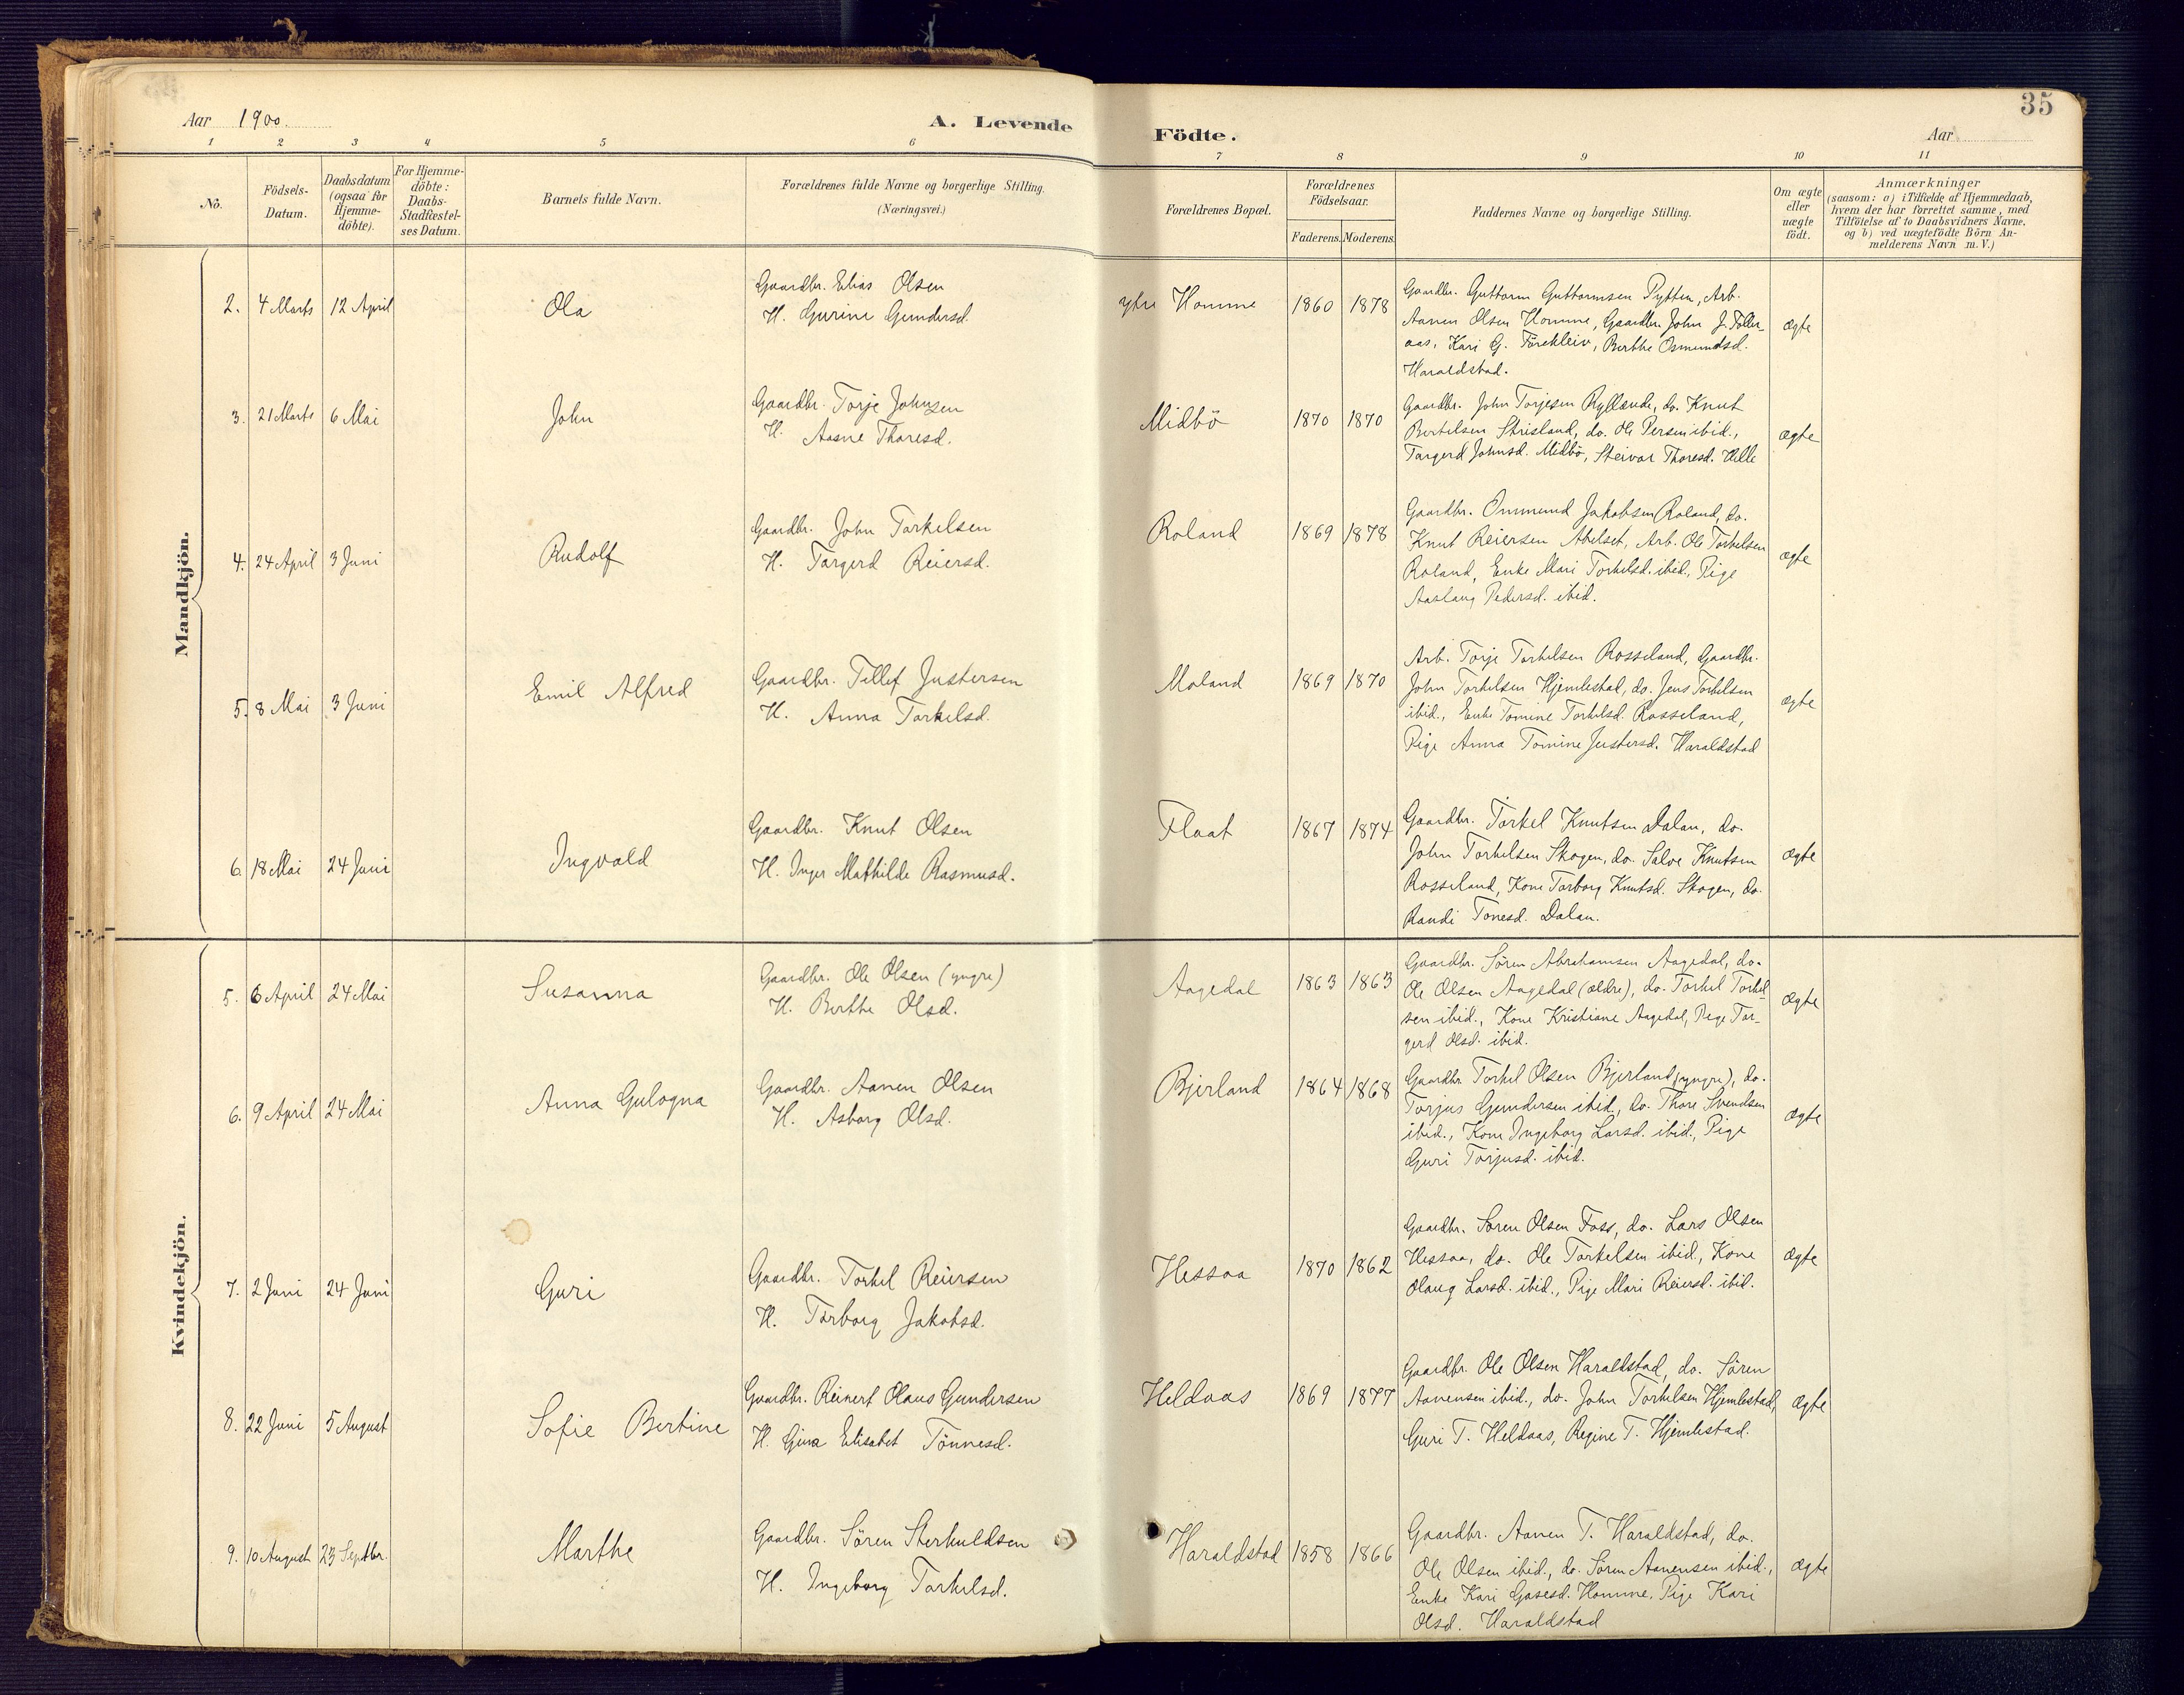 35
Aar 1900.
A. Levende Födte.
Aar
1 2 3 4 5 6 7 8 9 10 11
No.
Födsels-Datum.
Daabsdatum (ogsaa for Hjemme-döbte).
For Hjemme-döbte: Daabs-Stadfæstel-ses Datum.
Barnets fulde Navn.
Forældrenes fulde Navne og borgerlige Stilling.
(Næringsvei.)
Forældrenes Bopæl.
Forældrenes Födselsaar.
Faderens. Moderens.
Faddernes Navne og borgerlige Stilling.
Om ægte eller uægte födt.
Anmærkninger
(saasom: a) i Tilfælde af Hjemmedaab,
hvem der har forrettet samme, med
Tilföielse af to Daabsvidners Navne,
og b) ved uægtefödte Börn An-
melderens Navn m. V.)
Mandkjön.
2. 4 Marts 12 April Ola
Gaardbr. Elias Olsen
H. Gurine Gundersd.
ytre Homme 1860 1878
Gaardbr. Guttorm Guttormsen Pytten, Arb.
Aanen Olsen Homme, Gaardbr. John J. Foller-
aas, Kari G. Förekleiv, Berthe Osmundsd.
Haraldstad.
ægte
3. 21 Marts 6 Mai John
Gaardbr. Torje Johnsen
H. Aasne Thoresd.
Midbö 1870 1870
Gaardbr. John Torjesen Ryllande, do. Knut
Bertelsen Strisland, do. Ole Persen ibid.,
Targerd Johnsd. Midbö, Steivor Thoresd. Hille
ægte
4. 24 April 3 Juni Rudolf
Gaardbr. John Torkelsen
H. Targerd Reiersd.
Roland 1869 1878
Gaardbr. Ommund Jakobsen Roland, do.
Knut Reiersen Abelset, Arb. Ole Torkelsen
Roland, Enke Mari Torkelsd. ibid., Pige
Aaslaug Pedersd. ibid.
ægte
5. 8 Mai 3 Juni Emil Alfred
Gaardbr. Tellef Justersen
H. Anna Torkelsd.
Moland 1869 1870
Arb. Torje Torkelsen Rosseland, Gaardbr.
John Torkelsen Hjemlestad, do. Jens Torkelsen
ibid., Enke Tomine Torkelsd. Rosseland,
Pige Anna Tomine Justersd. Haraldstad
ægte
6. 18 Mai 24 Juni Ingvald
Gaardbr. Knut Olsen
H. Inger Mathilde Rasmusd.
Flaat 1867 1874
Gaardbr. Torkel Knutsen Dalan, do.
John Torkelsen Skogen, do. Salve Knutsen
Rosseland, Kone Torborg Knutsd. Skogen, do.
Randi Tonesd. Dalan.
ægte
Kvindekjön.
5. 6 April 24 Mai Susanna
Gaardbr. Ole Olsen (yngre)
H. Berthe Olsd.
Aagedal 1863 1863
Gaardbr. Sören Abrahamsen Aagedal, do.
Ole Olsen Aagedal (ældre), do. Torkel Torkel-
sen ibid., Kone Kristiane Aagedal, Pige Tar-
gerd Olsd. ibid.
ægte
6. 9 April 24 Mai Anna Gulogna
Gaardbr. Aanen Olsen
H. Asborg Olsd.
Bjerland 1864 1868
Gaardbr. Torkel Olsen Bjerland (yngre), do.
Torjus Gundersen ibid., do. Thore Svendsen
ibid., Kone Ingeborg Larsd. ibid., Pige
Guri Torjusd. ibid.
ægte
7. 2 Juni 24 Juni Guri
Gaardbr. Torkel Reiersen
H. Torborg Jakobsd.
Hessaa 1870 1862
Gaardbr. Sören Olsen Foss, do. Lars Olsen
Hessaa, do. Ole Torkelsen ibid., Kone
Olaug Larsd. ibid., Pige Mari Reiersd. ibid.
ægte
8. 22 Juni 5 August Sofie Bertine
Gaardbr. Reinert Olaus Gundersen
H. Gina Elisabet Tönnesd.
Heldaas 1869 1877
Gaardbr. Ole Olsen Haraldstad, do. Sören
Aanensen ibid., do. John Torkelsen Hjemlestad,
Guri T. Heldaas, Regine T. Hjemlestad.
ægte
9. 10 August 23 Septbr. Marthe
Gaardbr. Sören Sterkuldsen
H. Ingeborg Torkelsd.
Haraldstad 1858 1866
Gaardbr. Aanen T. Haraldstad, do.
Ole Olsen ibid., do. Sören Aanensen ibid.,
Enke Kari Gasesd. Homme, Pige Kari
Olsd. Haraldstad
ægte